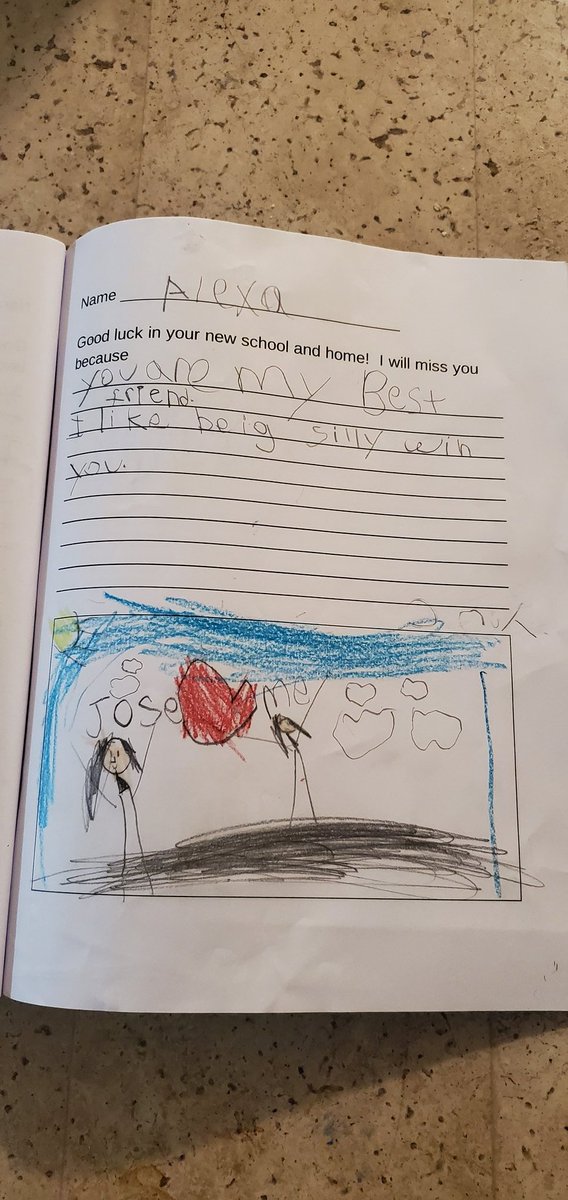 Name Alexa
Good luck in your new school and home! I will miss you
because
you are my Best
friend.
I like beig silly wih
you.
Jose me